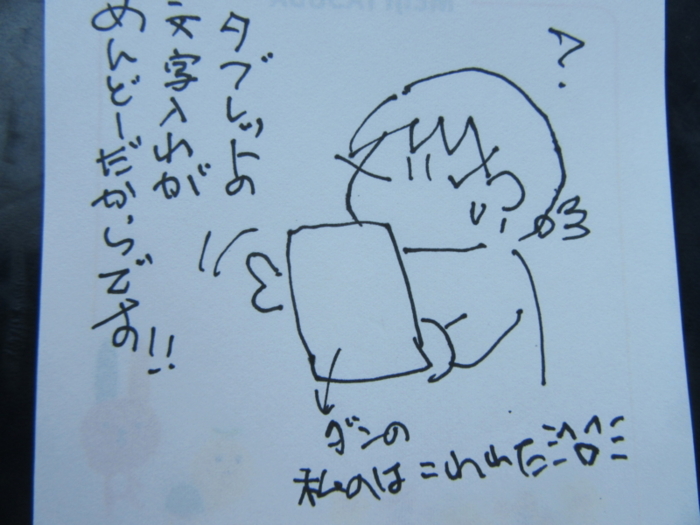 タブレットの
文字入れが
めんどーだからです!!
ダンの
私のはこわれた